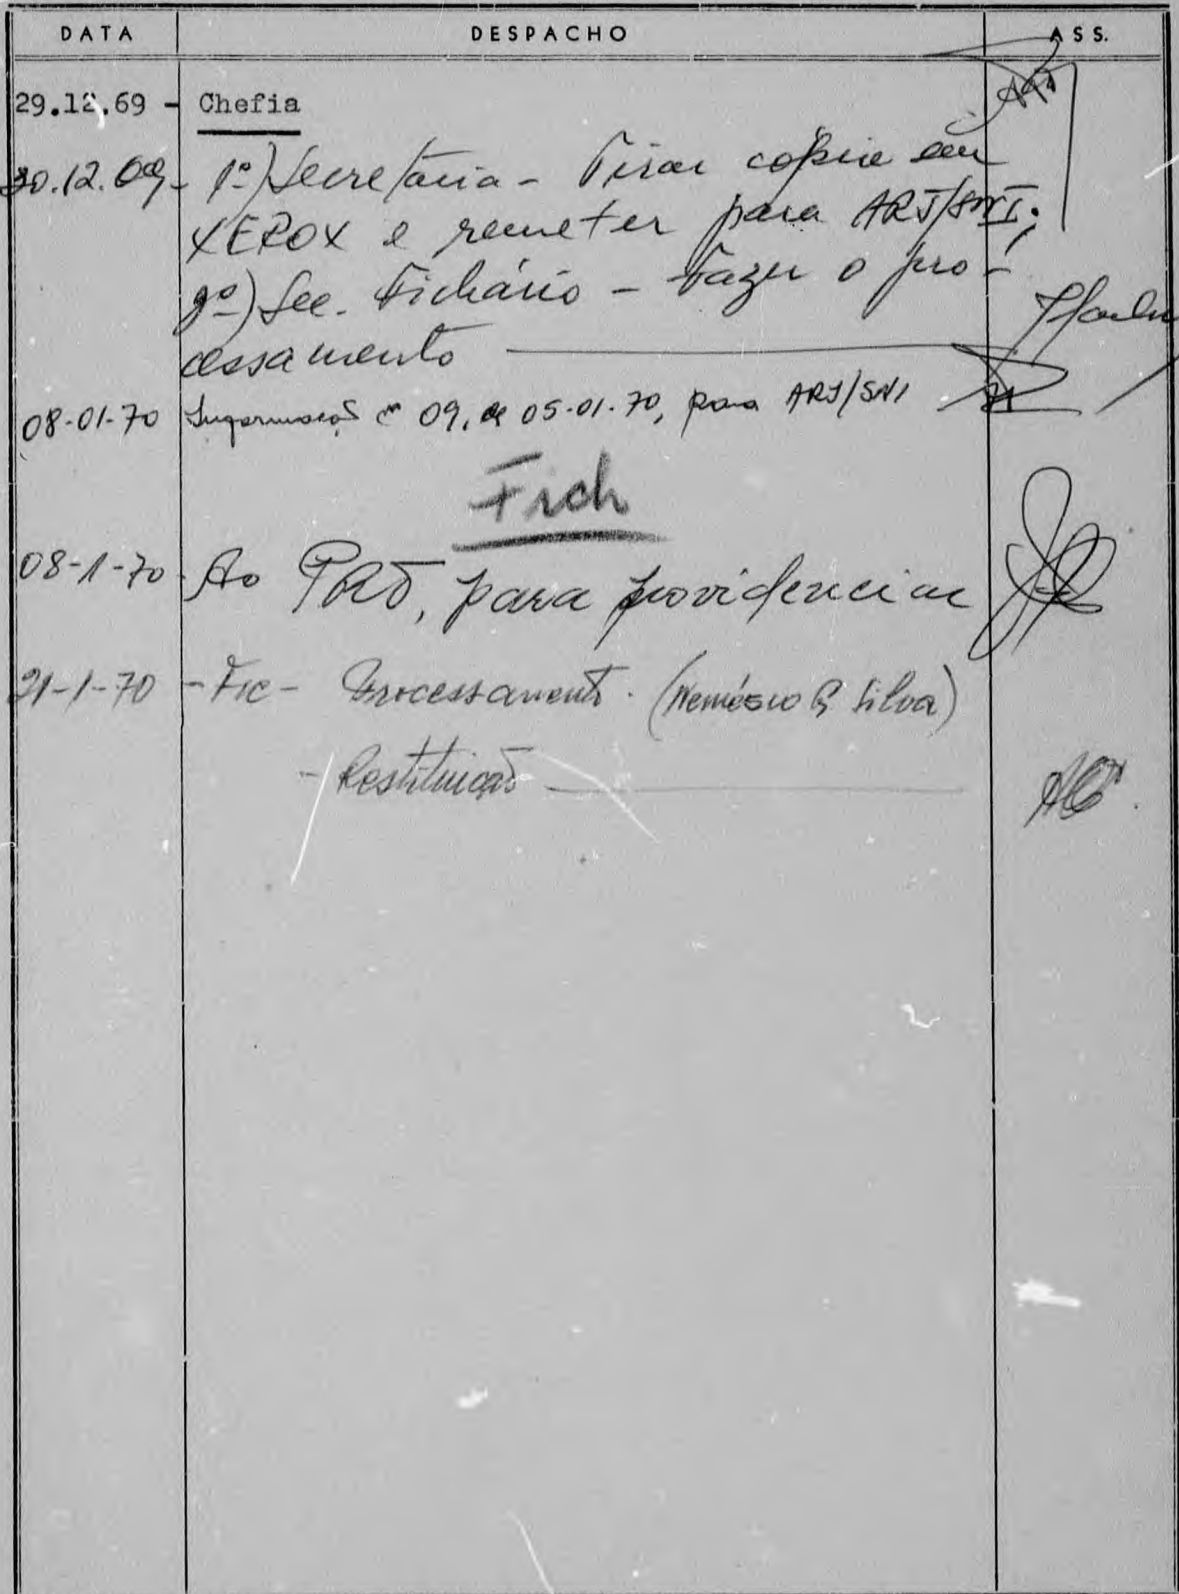 DATA DESPACHO ASS.
29.12.69 - Chefia
30.12.69 - 1º) Secretaria - Tirar copia em
XEROX e remeter para ARJ/SNI;
2º) Sec. Fichário - Fazer o pro-
cessamento
08-01-70 Informação nº 09, de 05-01-70, para ARJ/SNI
Fich
08-1-70 - Ao para providenciar
21-1-70 - Fic - Processamento. (Nemésio G Silva)
- Restituição